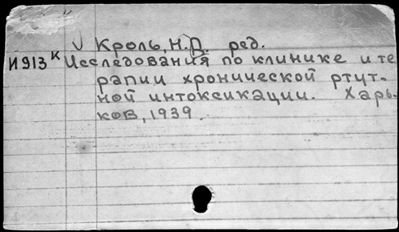 Кроль, Н.П. ред.
И913к Исследования по клинике и те
рапии хронической ртут-
ной интоксикации. Харь-
ков, 1939.